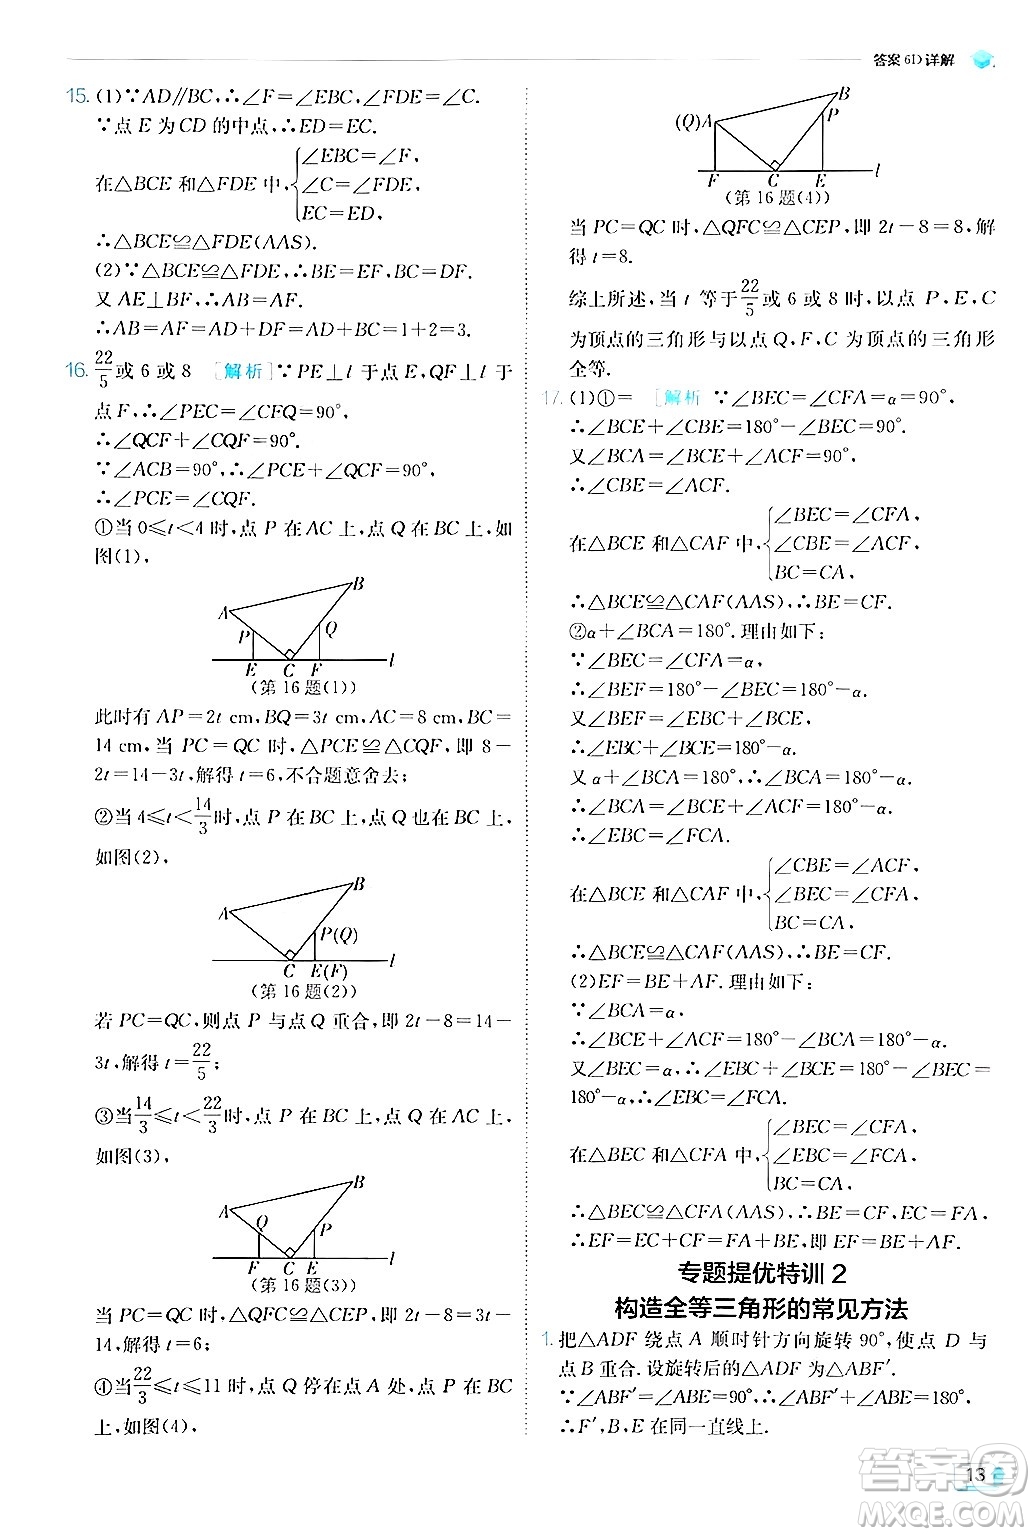 答案 61) 详解
15. (1)∵AD∥BC,∴∠F=∠EBC,∠FDE=∠C.
∵点 E 为 CD 的中点,∴ED=EC.
在△BCE 和△FDE 中,
∠EBC=∠F,
∠C=∠FDE,
EC=ED,
∴△BCE≌△FDE(AAS).
(2)∵△BCE≌△FDE,∴BE=EF,BC=DF.
又 AE⊥BF,∴AB=AF.
∴AB=AF=AD+DF=AD+BC=1+2=3.
16. 22/5 或 6 或 8 [解析]∵PE⊥l 于点 E,QF⊥l 于
点 F,∴∠PEC=∠CFQ=90°.
∴∠QCF+∠CQF=90°.
∵∠ACB=90°,∴∠PCE+∠QCF=90°.
∴∠PCE=∠CQF.
①当 0≤t<4 时,点 P 在 AC 上,点 Q 在 BC 上,如
图(1),
A B P Q E C F l
(第 16 题(1))
此时有 AP=2t cm,BQ=3t cm,AC=8 cm,BC=
14 cm,当 PC=QC 时,△PCE≌△CQF,即 8-
2t=14-3t,解得 t=6,不合题意舍去;
②当 4≤t<14/3时,点 P 在 BC 上,点 Q 也在 BC 上,
如图(2),
A B P(Q) C E(F) l
(第 16 题(2))
若 PC=QC,则点 P 与点 Q 重合,即 2t-8=14-
3t,解得 t=22/5;
③当14/3≤t<22/3时,点 P 在 BC 上,点 Q 在 AC 上,
如图(3),
A B Q P F C E l
(第 16 题(3))
当 PC=QC 时,△QFC≌△CEP,即 2t-8=3t-
14,解得 t=6;
④当22/3≤t≤11 时,点 Q 停在点 A 处,点 P 在 BC
上,如图(4),
(Q)A B P F C E l
(第 16 题(4))
当 PC=QC 时,△QFC≌△CEP,即 2t-8=8,解
得 t=8.
综上所述,当 t 等于22/5或 6 或 8 时,以点 P,E,C
为顶点的三角形与以点 Q,F,C 为顶点的三角形
全等.
17. (1)①= [解析] ∵∠BEC=∠CFA=α=90°,
∴∠BCE+∠CBE=180°-∠BEC=90°.
又∠BCA=∠BCE+∠ACF=90°,
∴∠CBE=∠ACF.
在△BCE 和△CAF 中,
∠BEC=∠CFA,
∠CBE=∠ACF,
BC=CA,
∴△BCE≌△CAF(AAS),∴BE=CF.
②α+∠BCA=180°.理由如下:
∵∠BEC=∠CFA=α,
∴∠BEF=180°-∠BEC=180°-α.
又∠BEF=∠EBC+∠BCE,
∴∠EBC+∠BCE=180°-α.
又 α+∠BCA=180°,∴∠BCA=180°-α.
∴∠BCA=∠BCE+∠ACF=180°-α.
∴∠EBC=∠FCA.
在△BCE 和△CAF 中,
∠CBE=∠ACF,
∠BEC=∠CFA,
BC=CA,
∴△BCE≌△CAF(AAS),∴BE=CF.
(2)EF=BE+AF.理由如下:
∵∠BCA=α,
∴∠BCE+∠ACF=180°-∠BCA=180°-α.
又∠BEC=α,∴∠EBC+∠BCE=180°-∠BEC=
180°-α,∴∠EBC=∠FCA.
在△BEC 和△CFA 中,
∠BEC=∠CFA,
∠EBC=∠FCA,
BC=CA,
∴△BEC≌△CFA(AAS),∴BE=CF,EC=FA,
∴EF=EC+CF=FA+BE,即 EF=BE+AF.
专题提优特训 2
构造全等三角形的常见方法
1. 把△ADF 绕点 A 顺时针方向旋转 90°,使点 D 与
点 B 重合.设旋转后的△ADF 为△ABF′.
∵∠ABF′=∠ABE=90°,∴∠ABF′+∠ABE=180°,
∴F′,B,E 在同一直线上.
13
答案圈
MXQE.COM